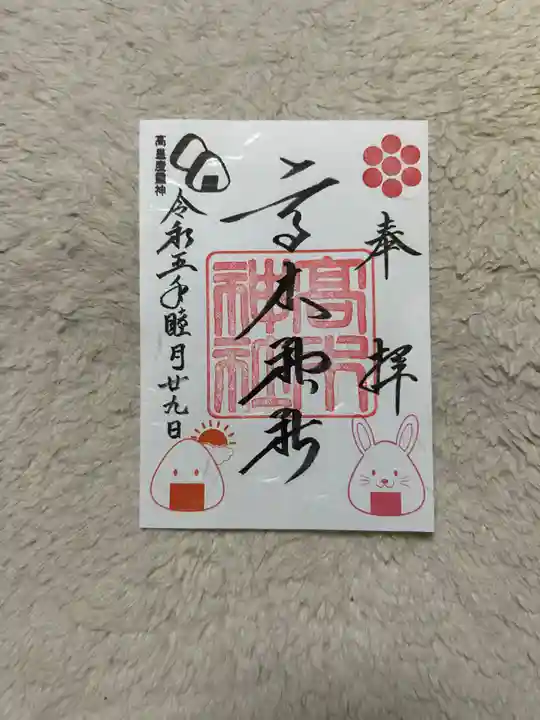 奉拝
高木神社
高木神社
令和五年睦月廿九日
高皇産靈神